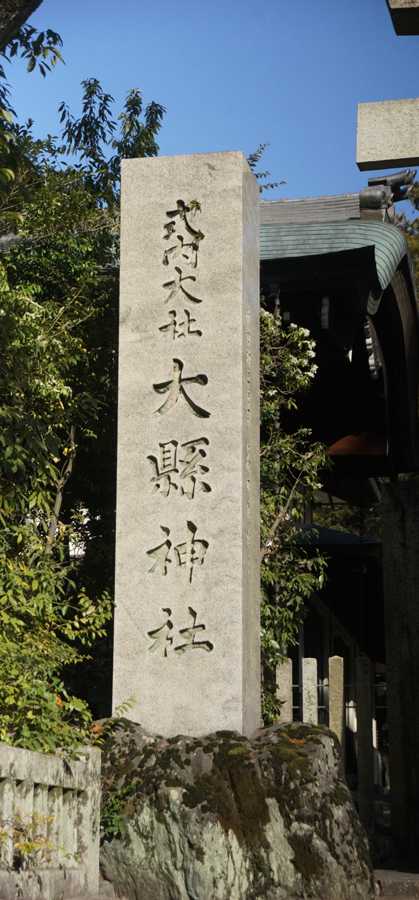 式内大社大縣神社